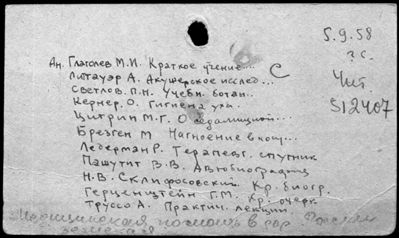 5.9.58
з с.
Ан. Глаголев М.И. Краткое учение...
Литауэр А. Акушерское исслед...
С
Чит.
Светлов. П.Н. Учебн. ботан.
512407
Кернер. О. Гигиена уха.
Цитрин М.Г. О седалищной...
Брезген М Нагноение в кощ...
Ледерман Р. Терапевт. спутник
Пашутин В.В. Автобиография
Н.В. Склифосовский. Кр. биогр.
Герценштейн Г.М. Кр. очерк.
Труссо А. Практич. лекции.
Медицинская помощь в